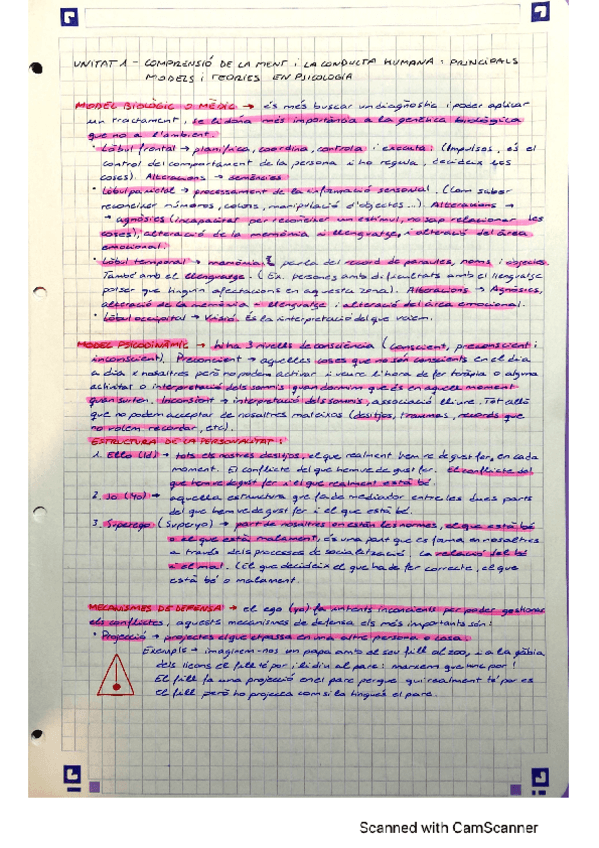 UNITAT 1 - COMPRENSIÓ DE LA MENT I LA CONDUCTA HUMANA: PRINCIPALS
MODELS I TEORIES EN PSICOLOGIA
MODEL BIOLÒGIC O MÈDIC → és més buscar un diagnòstic i poder aplicar
un tractament, se li dóna més importància a la genètica biològica
que no a l'ambient.
· Lòbul frontal → planifica, coordina, controla i executa: (Impulsos, és el
control del comportament de la persona i ho regula, decideix les
coses). Alteracions → demències
· Lòbul parietal → processament de la informació sensorial. (Com saber
reconèixer números, colors, manipulació d'objectes...). Alteracions →
→ agnòsies (incapacitat per reconèixer un estímul, no sap relacionar les
coses), alteració de la memòria i llenguatge, i alteració del àrea
emocional.
· Lòbul temporal → memòria: parla del record de paraules, noms i objectes.
També amb el llenguatge. (Ex. persones amb dificultats amb el llenguatge
potser que tinguin afectacions en aquesta zona). Alteracions → Agnòsies,
alteració de la memòria - llenguatge i alteració del àrea emocional.
· Lòbul occipital → Visió. És la interpretació del que veiem.
MODEL PSICODINÀMIC → hi ha 3 nivells de consciència (conscient, preconscient i
inconscient). Preconcient → aquelles coses que no són conscients en el dia
a dia x nosaltres però no podem activar i veure l'hora de fer teràpia o alguna
activitat o interpretació dels somnis quan dormim que és en aquell moment
quan surten. Inconscient → interpretació dels somnis, associació lliure. Tot allò
que no podem acceptar de nosaltres mateixos (desitjos, traumes, records que
no volem recordar, etc).
ESTRUCTURA DE LA PERSONALITAT:
1. Ello (Id) → tots els nostres desitjos, el que realment hem re de gust fer, en cada
moment. El conflicte del que hem ve de gust fer. El conflicte del
que hem ve de gust fer i el que realment està bé.
2. Jo (Yo) → aquella estructura que fa de mediador entre les dues parts
del que hem ve de gust fer i el que està bé.
3. Superego (Superyo) → part de nosaltres on estàn les normes, el que està bé
o el que està malament, és una part que es forma en nosaltres
a través dels processos de socialització. La relació del bé
i el mal. (El que decideix el que ha de fer correcte, el que
està bó o malament.
MECANISMES DE DEFENSA → el ego (yo) fa intents inconcients per poder gestionar
els conflictes, aquests mecanismes de defensa els més importants són:
· Projecció → projectes el que et passa en una altre persona o cosa.
Exemple → imaginem-nos un papa amb el seu fill al zoo, i a la gàbia
dels lleons el fill té por i li diu al pare: marxem que tinc por!
El fill fa una projecció en el pare perquè qui realment té por es
el fill però ho projecta com si la tingués el pare.
Scanned with CamScanner